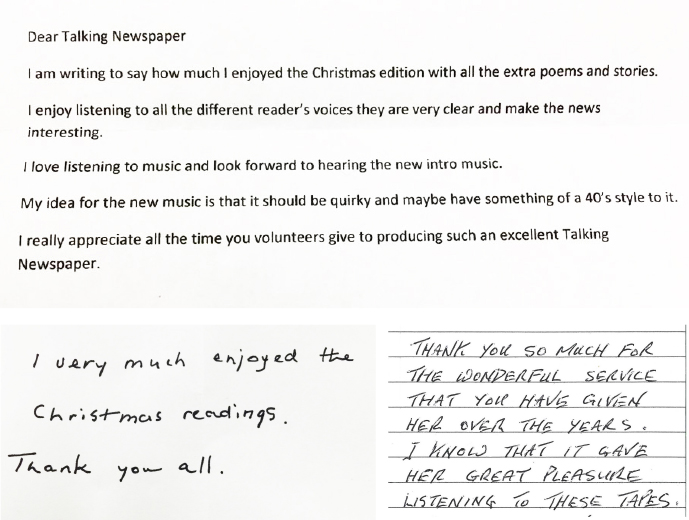 Dear Talking Newspaper
I am writing to say how much I enjoyed the Christmas edition with all the extra poems and stories.
I enjoy listening to all the different reader's voices they are very clear and make the news
interesting.
I love listening to music and look forward to hearing the new intro music.
My idea for the new music is that it should be quirky and maybe have something of a 40's style to it.
I really appreciate all the time you volunteers give to producing such an excellent Talking
Newspaper.
I very much enjoyed the
Christmas readings.
Thank you all.
THANK YOU SO MUCH FOR
THE WONDERFUL SERVICE
THAT YOU HAVE GIVEN
HER OVER THE YEARS.
I KNOW THAT IT GAVE
HER GREAT PLEASURE
LISTENING TO THESE TAPES.